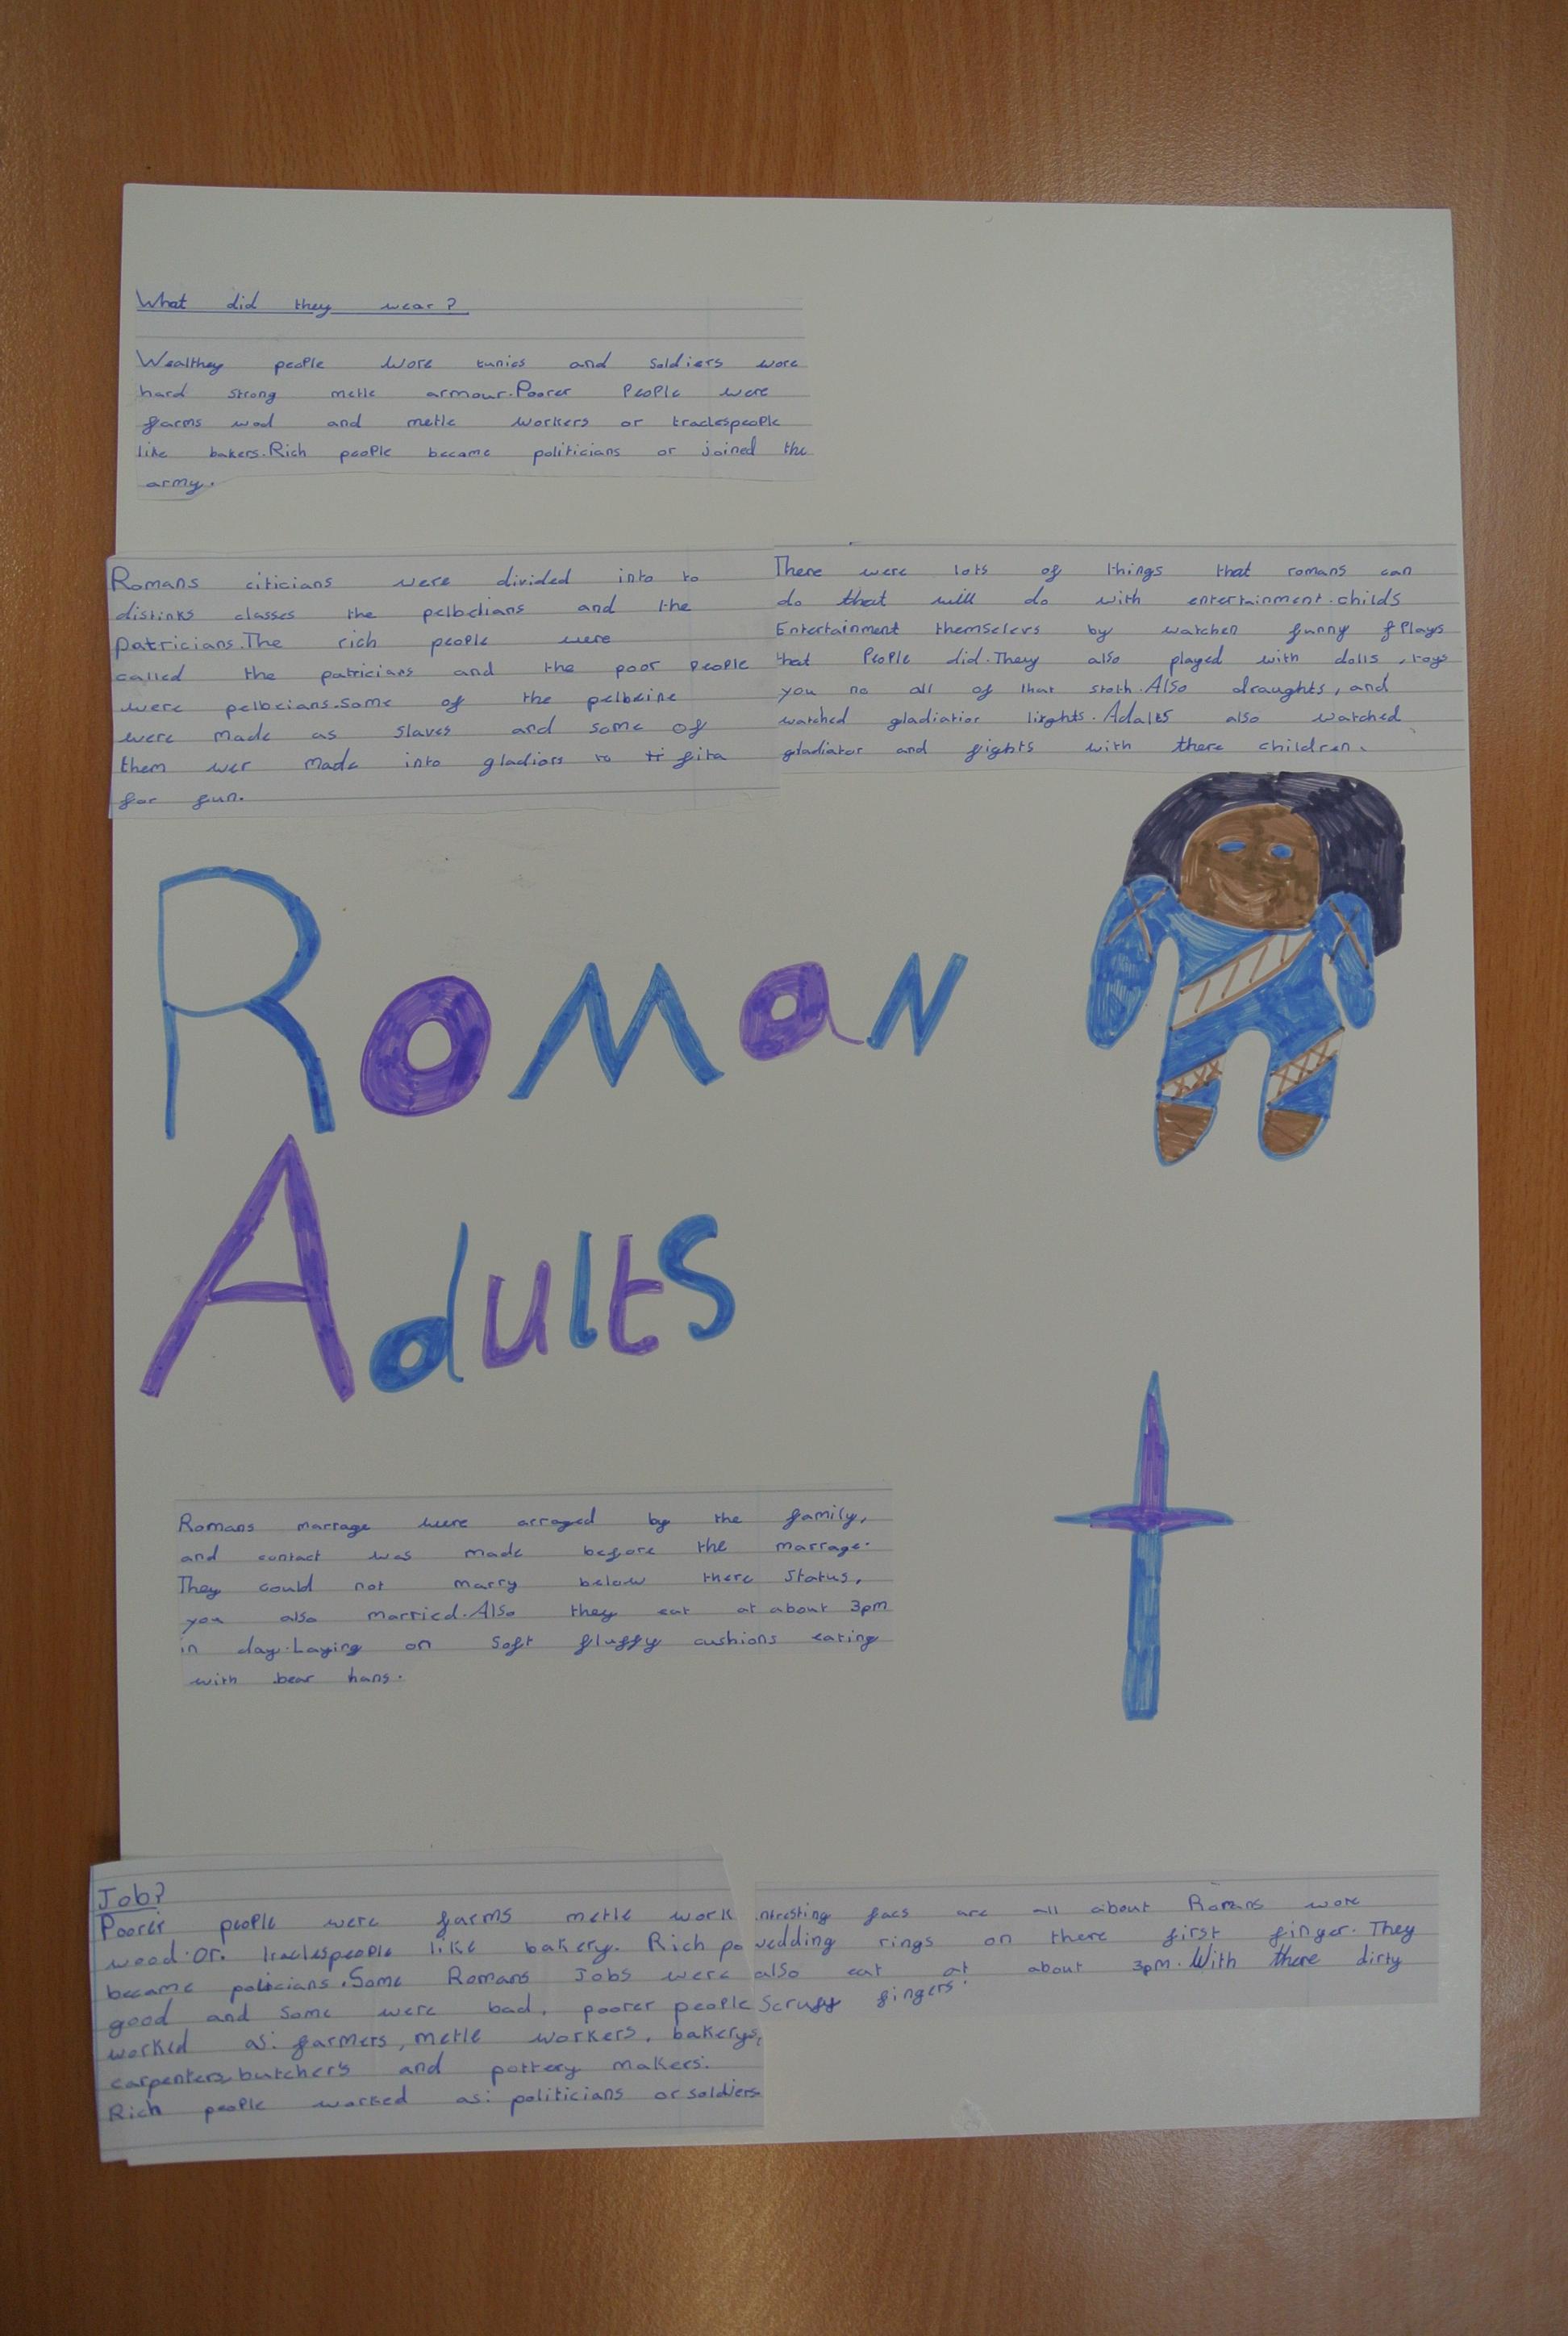 What did they wear?
Wealthey people wore tunics and soldiers wore
hard strong metle armour. Poorer People were
farms wod and metle workers or tradespeople
like bakers. Rich people became politicians or joined the
army.
Romans citicians were divided into to
distinks classes the pelbedians and the
Patricians. The rich people were
called the patricians and the poor people
were pelbeians. some of the pelbeine
were made as slaves and some of
them wer made into gladiors to fita
for fun.
There were lots of things that romans can
do that will do with entertainment. childs
Entertainment themselevs by watchen funny fplays
that People did. They also played with dolls, toys
you no all of that stoth. Also draughts, and
watched gladiatior lixghts. Adalts also watched
gladiator and fights with there children.
Roman
Adults
Romans marrage were arraged by the family,
and contact was made before the marrage.
They could not marry below there status,
you also married. Also they eat at about 3pm
in day. Laying on soft fluffy cushions eating
with bear hans.
Job?
Poorer people were farms metle work
wood. or. tradespeople like bakery. Rich po
became policians. Some Romans Jobs were
good and some were bad. poorer people
worked as: farmers, metle workers, bakerys,
carpenters, butcher's and pottery makers.
Rich people worked as: politicians or soldiers
ntresting facs are all about Romans wore
wedding rings on there first finger. They
also eat at about 3pm. With there dirty
scruff fingers.